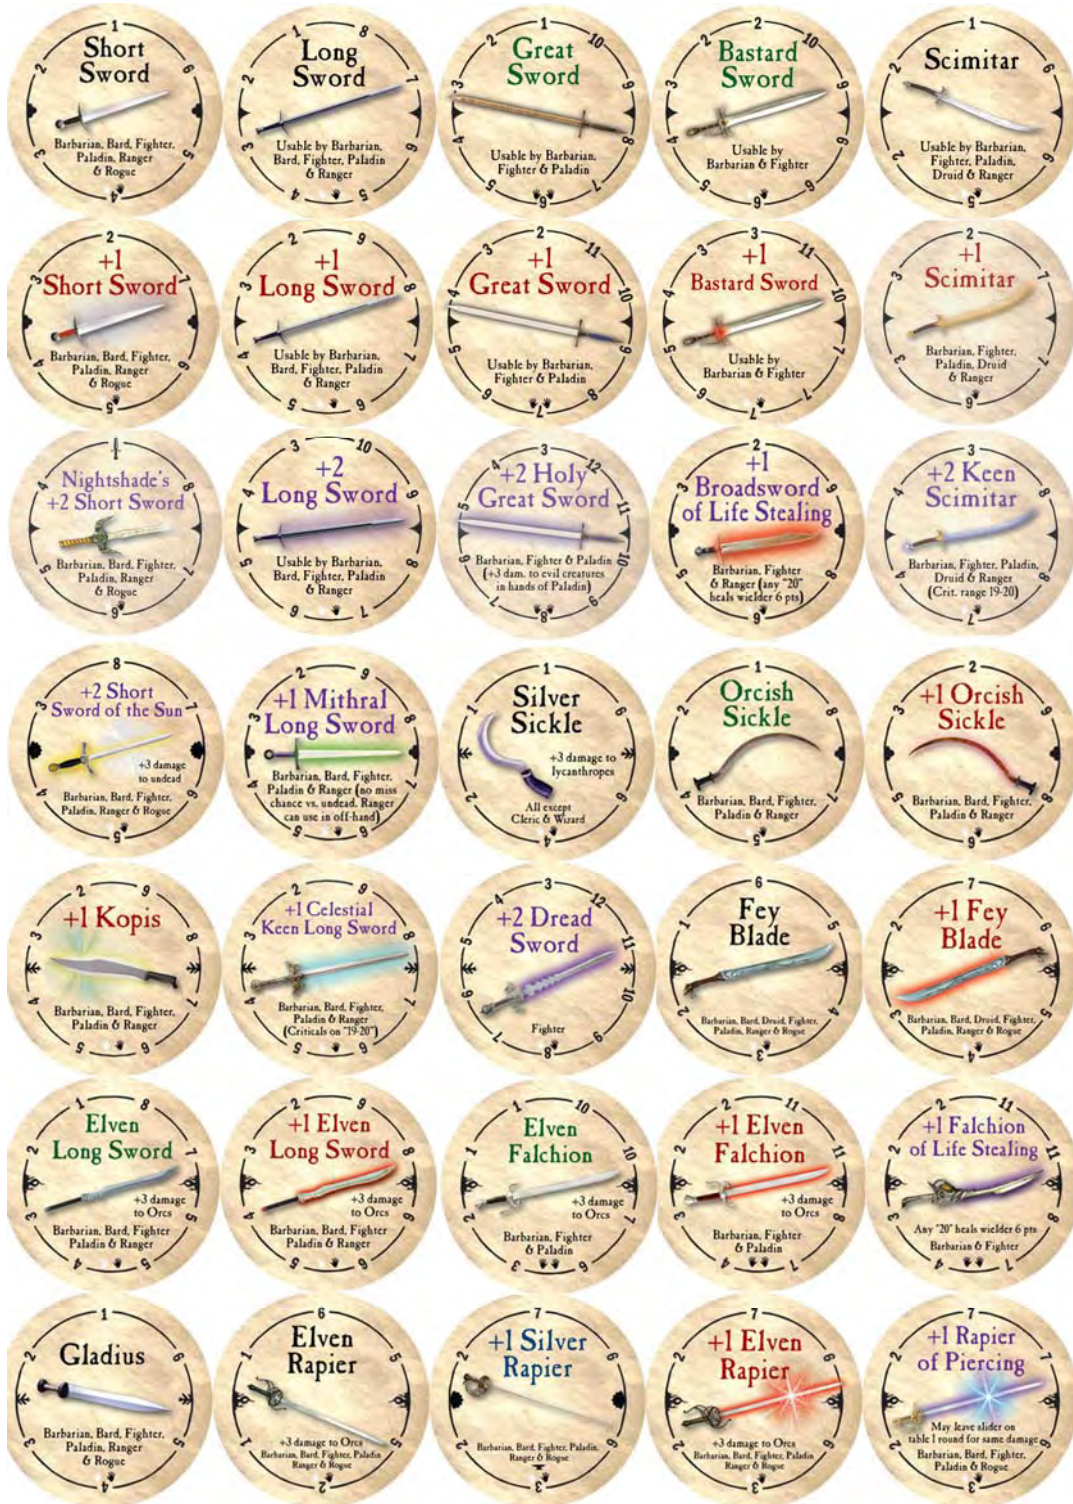 Short
Sword
Barbarian, Bard, Fighter,
Paladin, Ranger
& Rogue
Long
Sword
Usable by Barbarian,
Bard, Fighter, Paladin
& Ranger
Great
Sword
Usable by Barbarian,
Fighter & Paladin
Bastard
Sword
Usable by
Barbarian & Fighter
Scimitar
Usable by Barbarian,
Fighter, Paladin,
Druid & Ranger
+1
Short Sword
Barbarian, Bard, Fighter,
Paladin, Ranger
& Rogue
+1
Long Sword
Usable by Barbarian,
Bard, Fighter, Paladin
& Ranger
+1
Great Sword
Usable by Barbarian,
Fighter & Paladin
+1
Bastard Sword
Usable by
Barbarian & Fighter
+1
Scimitar
Barbarian, Fighter,
Paladin, Druid
& Ranger
Nightshade's
+2 Short Sword
Barbarian, Bard, Fighter,
Paladin, Ranger
& Rogue
+2
Long Sword
Usable by Barbarian,
Bard, Fighter, Paladin
& Ranger
+2 Holy
Great Sword
Barbarian, Fighter & Paladin
(+3 dam. to evil creatures
in hands of Paladin)
+1
Broadsword
of Life Stealing
Barbarian, Fighter
& Ranger (any "20"
heals wielder 6 pts)
+2 Keen
Scimitar
Barbarian, Fighter, Paladin,
Druid & Ranger
(Crit. range 19-20)
+2 Short
Sword of the Sun
+3 damage
to undead
Barbarian, Bard, Fighter,
Paladin, Ranger & Rogue
+1 Mithral
Long Sword
Barbarian, Bard, Fighter,
Paladin & Ranger (no miss
chance vs. undead. Ranger
can use in off-hand)
Silver
Sickle
+3 damage to
lycanthropes
All except
Cleric & Wizard
Orcish
Sickle
Barbarian, Bard, Fighter,
Paladin & Ranger
+1 Orcish
Sickle
Barbarian, Bard, Fighter,
Paladin & Ranger
+1 Kopis
Barbarian, Bard, Fighter,
Paladin & Ranger
+1 Celestial
Keen Long Sword
Barbarian, Bard, Fighter,
Paladin & Ranger
(Criticals on "19-20")
+2 Dread
Sword
Fighter
Fey
Blade
Barbarian, Bard, Druid, Fighter,
Paladin, Ranger & Rogue
+1 Fey
Blade
Barbarian, Bard, Druid, Fighter,
Paladin, Ranger & Rogue
Elven
Long Sword
Barbarian, Bard, Fighter
Paladin & Ranger
+1 Elven
Long Sword
+3 damage
to Orcs
Barbarian, Bard, Fighter
Paladin & Ranger
Elven
Falchion
+3 damage
to Orcs
Barbarian, Fighter
& Paladin
+1 Elven
Falchion
+3 damage
to Orcs
Barbarian, Fighter
& Paladin
+1 Falchion
of Life Stealing
Any "20" heals wielder 6 pts
Barbarian & Fighter
Gladius
Barbarian, Bard, Fighter,
Paladin, Ranger
& Rogue
Elven
Rapier
+3 damage to Orcs
Barbarian, Bard, Fighter, Paladin
Ranger & Rogue
+1 Silver
Rapier
Barbarian, Bard, Fighter, Paladin,
Ranger & Rogue
+1 Elven
Rapier
+3 damage to Orcs
Barbarian, Bard, Fighter, Paladin
Ranger & Rogue
+1 Rapier
of Piercing
May leave slider on
table 1 round for same damage
Barbarian, Bard, Fighter,
Paladin & Rogue